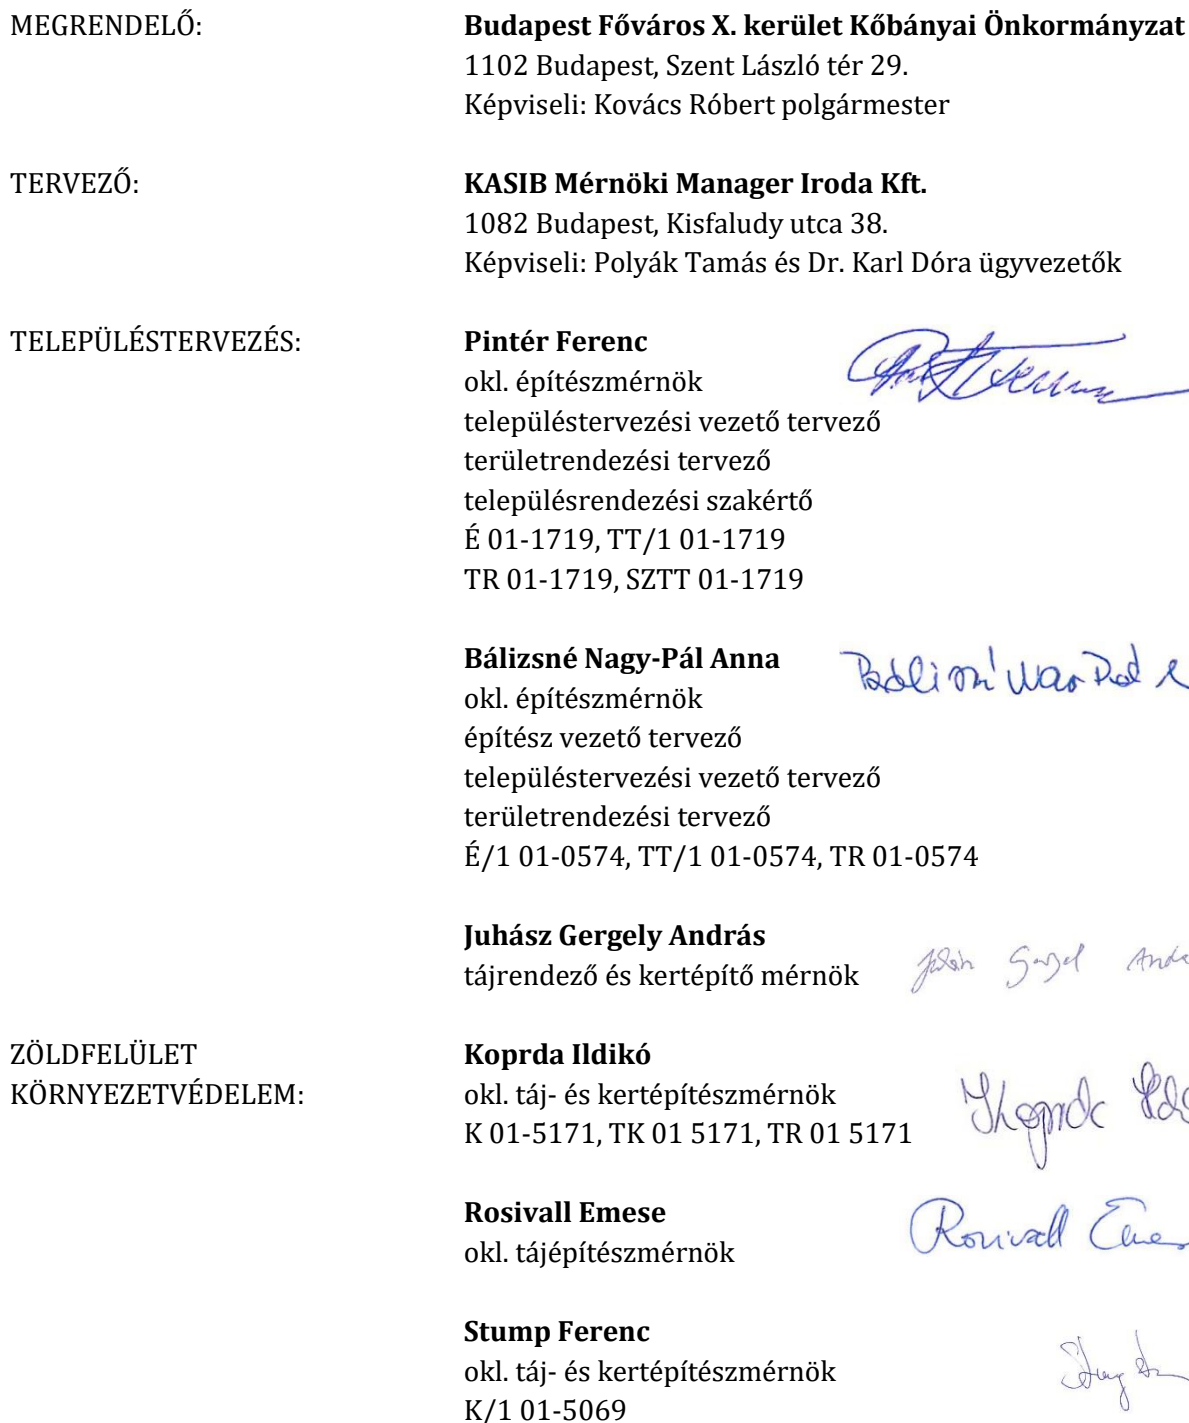 MEGRENDELŐ: Budapest Főváros X. kerület Kőbányai Önkormányzat
1102 Budapest, Szent László tér 29.
Képviseli: Kovács Róbert polgármester
TERVEZŐ: KASIB Mérnöki Manager Iroda Kft.
1082 Budapest, Kisfaludy utca 38.
Képviseli: Polyák Tamás és Dr. Karl Dóra ügyvezetők
TELEPÜLÉSTERVEZÉS: Pintér Ferenc
okl. építészmérnök
településtervezési vezető tervező
területrendezési tervező
településrendezési szakértő
É 01-1719, TT/1 01-1719
TR 01-1719, SZTT 01-1719
Bálizsné Nagy-Pál Anna
okl. építészmérnök
építész vezető tervező
településtervezési vezető tervező
területrendezési tervező
É/1 01-0574, TT/1 01-0574, TR 01-0574
Juhász Gergely András
tájrendező és kertépítő mérnök
ZÖLDFELÜLET Koprda Ildikó
KÖRNYEZETVÉDELEM: okl. táj- és kertépítészmérnök
K 01-5171, TK 01 5171, TR 01 5171
Rosivall Emese
Rosivall
okl. tájépítészmérnök
Stump Ferenc
okl. táj- és kertépítészmérnök
K/1 01-5069